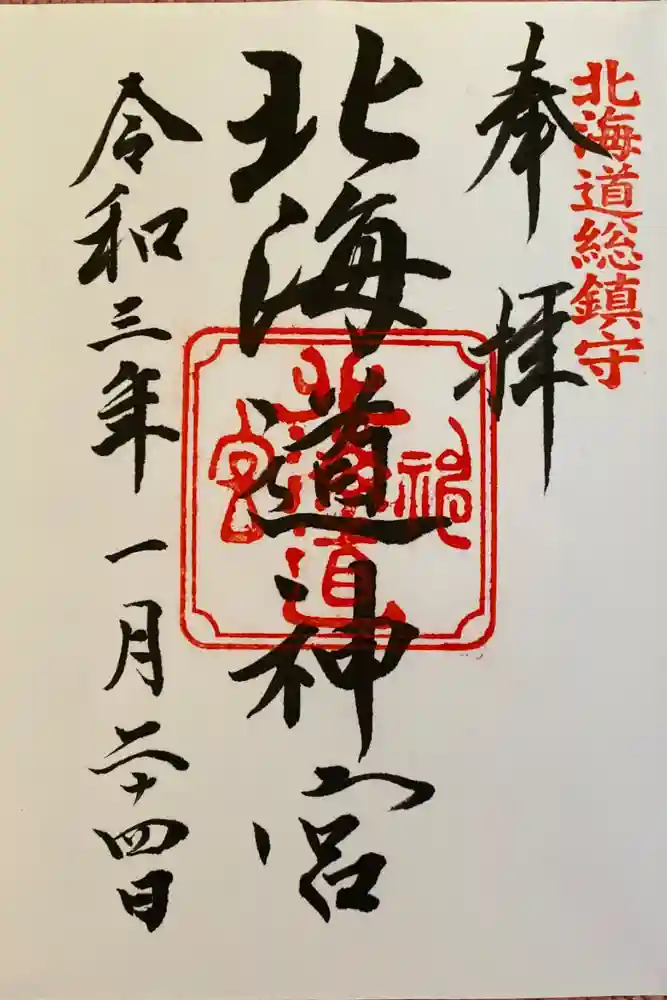 北海道総鎮守
奉拝
北海道神宮
北海道
神
宮
令和三年一月二十四日